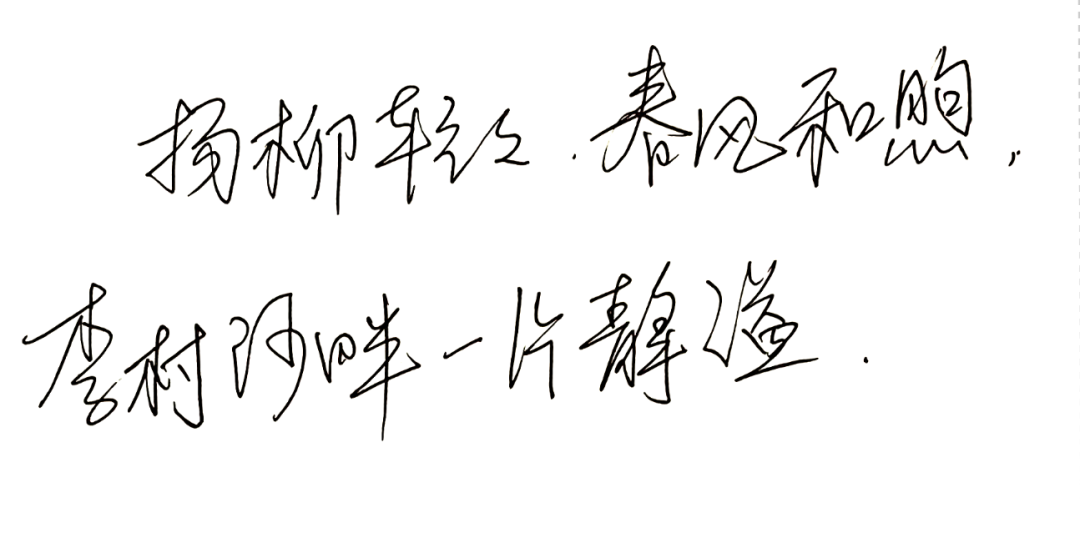 扬柳轻. 春风和煦,
李村河畔一片静谧.